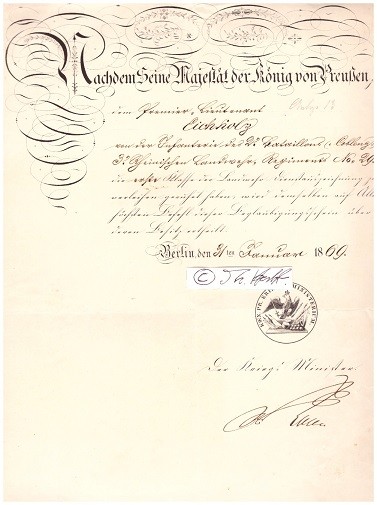 Nachdem Seine Majestät der König von Preußen,
dem Premier-Lieutenant
Eichholz
von der Infanterie des 2t Bataillons (Coblenz)
3t Rheinischen Landwehr-Regiments No. 29.
die erste Klasse der Landwehr-Dienstauszeichnung zu
verleihen geruht haben, wird demselben auf Aller-
höchsten Befehl dieser Beglaubigungsschein über
deren Besitz ertheilt.
Berlin, den 31ten Januar 1869.
© Th. Hoff.
KÖN. PR. KRIEGS MINISTERIUM.
Der Kriegs-Minister.
v. Roon